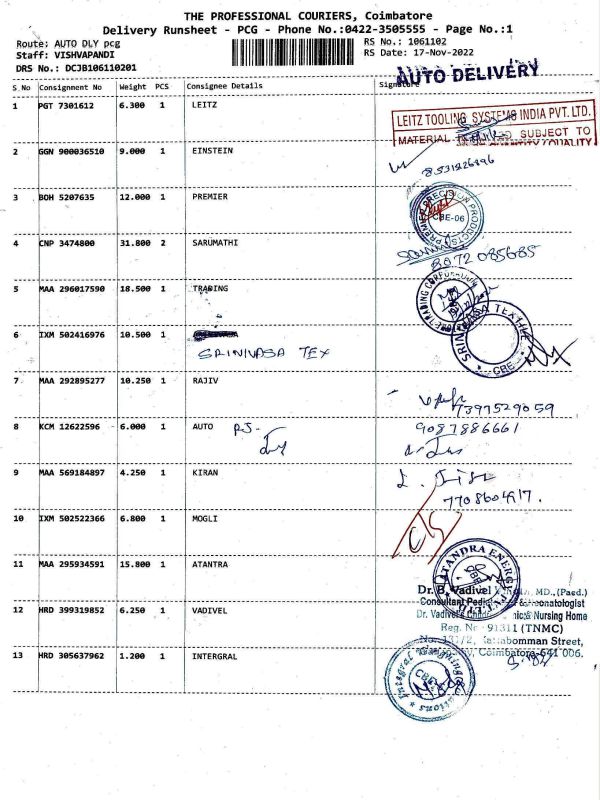 THE PROFESSIONAL COURIERS, Coimbatore
Delivery Runsheet - PCG - Phone No.:0422-3505555 - Page No.:1
Route: AUTO DLY pcg
RS No.: 1061102
Staff: VISHVAPANDI
RS Date: 17-Nov-2022
DRS No.: DCJB106110201
AUTO DELIVERY
S No Consignment No Weight PCS Consignee Details Signature
1 PGT 7301612 6.300 1 LEITZ
LEITZ TOOLING SYSTEMS INDIA PVT. LTD.
MATERIAL SUBJECT TO
QUANTITY / QUALITY
2 GGN 900036510 9.000 1 EINSTEIN
8531226896
3 BOH 5207635 12.000 1 PREMIER
PREMIER PRECISION PRODUCTS
CBE-06
4 CNP 3474800 31.800 2 SARUMATHI
8072085685
5 MAA 296017590 18.500 1 TRADING
TRADING CORPORATION
6 IXM 502416976 10.500 1
SRINIVASA TEX
SRINIVASA TEXTILE
CBE
7 MAA 292895277 10.250 1 RAJIV
7397529059
8 KCM 12622596 6.000 1 AUTO
9087886661
9 MAA 569184897 4.250 1 KIRAN
7708604917.
10 IXM 502522366 6.800 1 MOGLI
11 MAA 295934591 15.800 1 ATANTRA
ATANDRA ENERGY
Dr. B. Vadivel MD.,(Paed.)
Consultant & Neonatologist
12 HRD 399319852 6.250 1 VADIVEL
Dr. Vadivel's & Nursing Home
Reg. No - 91311 (TNMC)
Street,
Coimbatore-641 006.
13 HRD 305637962 1.200 1 INTERGRAL
Integral
CBE